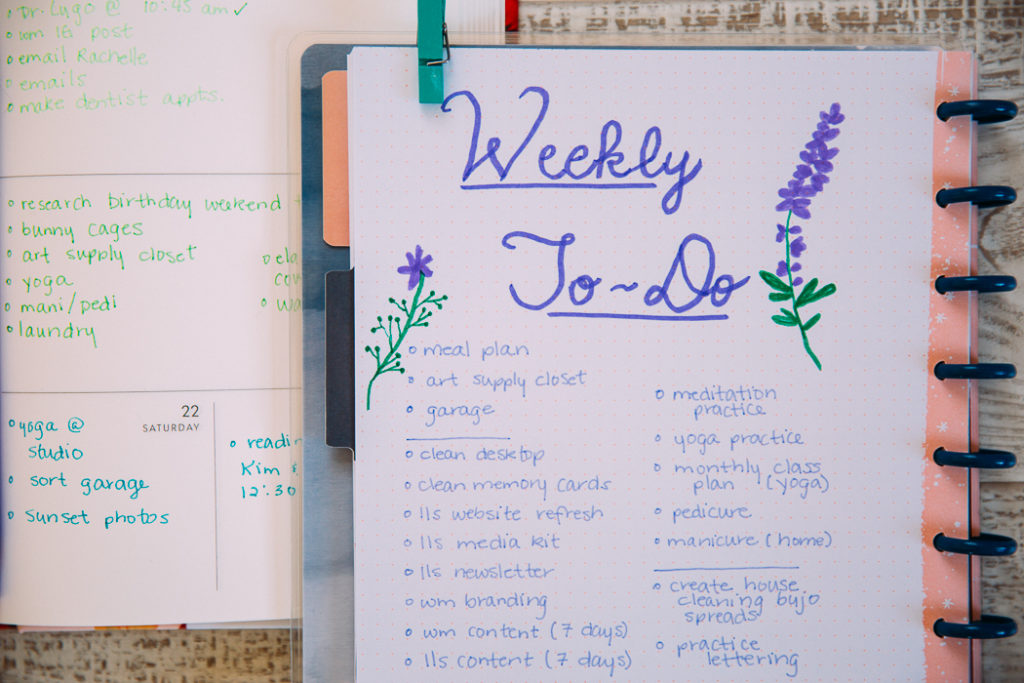 Dr. Lugo @ 10:45 am ✓
post
email Rachelle
emails
make dentist appts.
research birthday weekend
bunny cages
art supply closet
yoga
mani/pedi
laundry
22
SATURDAY
yoga @
studio
sort garage
sunset photos
Kim
12:30
Weekly
To~Do
meal plan
art supply closet
garage
clean desktop
clean memory cards
lls website refresh
lls media kit
lls newsletter
wm branding
wm content (7 days)
lls content (7 days)
meditation
practice
yoga practice
monthly class
plan (yoga)
pedicure
manicure (home)
create house
cleaning bujo
spreads
practice
lettering